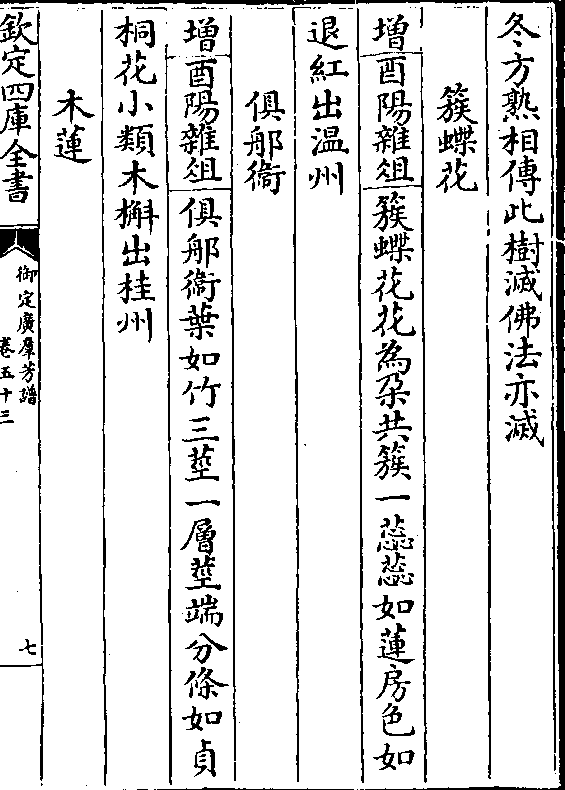 冬方熟相傳此樹滅佛法亦滅
簇蝶花
增酉陽雜俎簇蝶花花為朶共簇一蕊蕊如蓮房色如
退紅出温州
俱𦨕衞
增酉陽雜俎俱𦨕衞葉如竹三莖一層莖端分條如貞
桐花小類木槲出桂州
木蓮
欽定四庫全書
御定廣羣芳譜
卷五十三
七